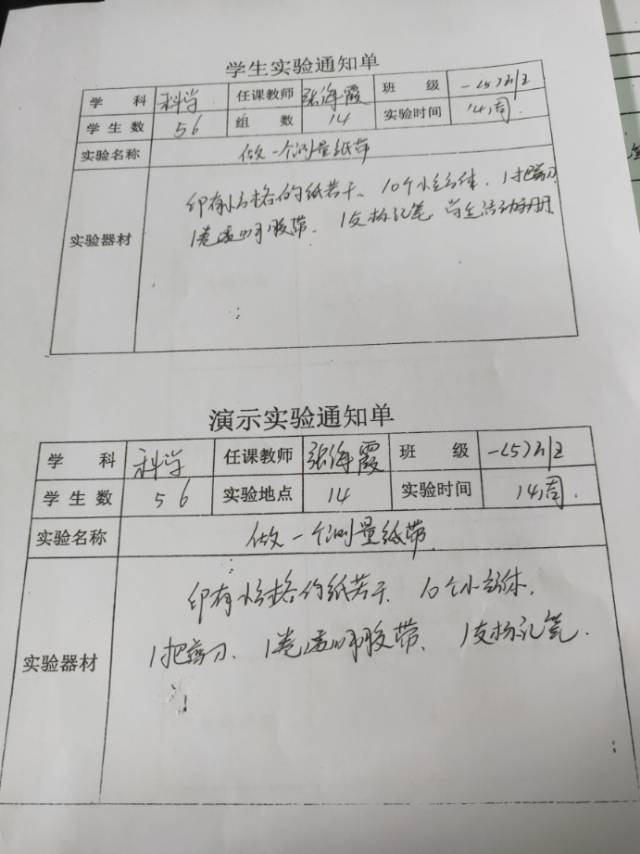 学生实验通知单
学 科 科学 任课教师 张海霞 班 级 一(5)班
学生数 56 组 数 14 实验时间 14周.
实验名称 做一个测量纸带
实验器材 印有方格的纸若干、10个小立方体、1把剪刀
1卷透明胶带、1支标记笔 学生活动手册
演示实验通知单
学 科 科学 任课教师 张海霞 班 级 一(5)班
学生数 56 实验地点 14 实验时间 14周.
实验名称 做一个测量纸带
实验器材 印有方格的纸若干、10个小方体、
1把剪刀、1卷透明胶带、1支标记笔.